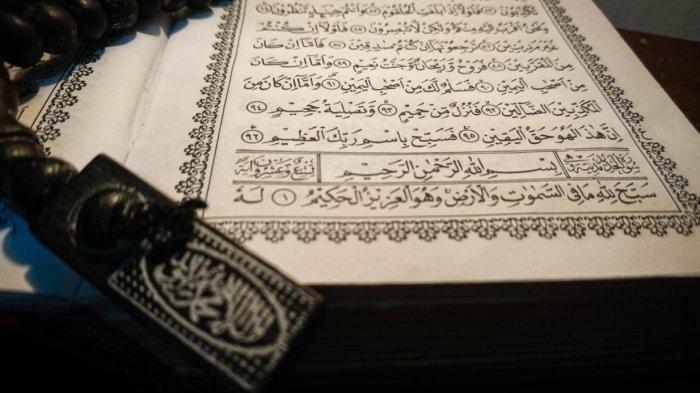 تُكَذِّبُونَ ٨٢ فَلَوْلَآ إِذَا بَلَغَتِ الْحُلْقُومَ ٨٣ وَأَنْتُمْ حِينَئِذٍ تَنْظُرُونَ ٨٤
وَنَحْنُ أَقْرَبُ إِلَيْهِ مِنْكُمْ وَلٰكِنْ لَا تُبْصِرُونَ ٨٥ فَلَوْلَآ إِنْ كُنْتُمْ
غَيْرَ مَدِينِينَ ٨٦ تَرْجِعُونَهَآ إِنْ كُنْتُمْ صٰدِقِينَ ٨٧ فَأَمَّآ إِنْ كَانَ
مِنَ الْمُقَرَّبِينَ ٨٨ فَرَوْحٌ وَرَيْحَانٌ وَجَنَّتُ نَعِيمٍ ٨٩ وَأَمَّآ إِنْ كَانَ
مِنْ أَصْحٰبِ الْيَمِينِ ٩٠ فَسَلٰمٌ لَكَ مِنْ أَصْحٰبِ الْيَمِينِ ٩١ وَأَمَّآ إِنْ كَانَ مِنَ
الْمُكَذِّبِينَ الضَّآلِّينَ ٩٢ فَنُزُلٌ مِنْ حَمِيمٍ ٩٣ وَتَصْلِيَةُ جَحِيمٍ ٩٤
إِنَّ هٰذَا لَهُوَ حَقُّ الْيَقِينِ ٩٥ فَسَبِّحْ بِاسْمِ رَبِّكَ الْعَظِيمِ ٩٦
سورة الحديد مدنية بِسْمِ اللهِ الرَّحْمٰنِ الرَّحِيمِ تسع وعشرون آية
سَبَّحَ لِلّٰهِ مَا فِي السَّمٰوٰتِ وَالْأَرْضِ وَهُوَ الْعَزِيزُ الْحَكِيمُ ١ لَهُ